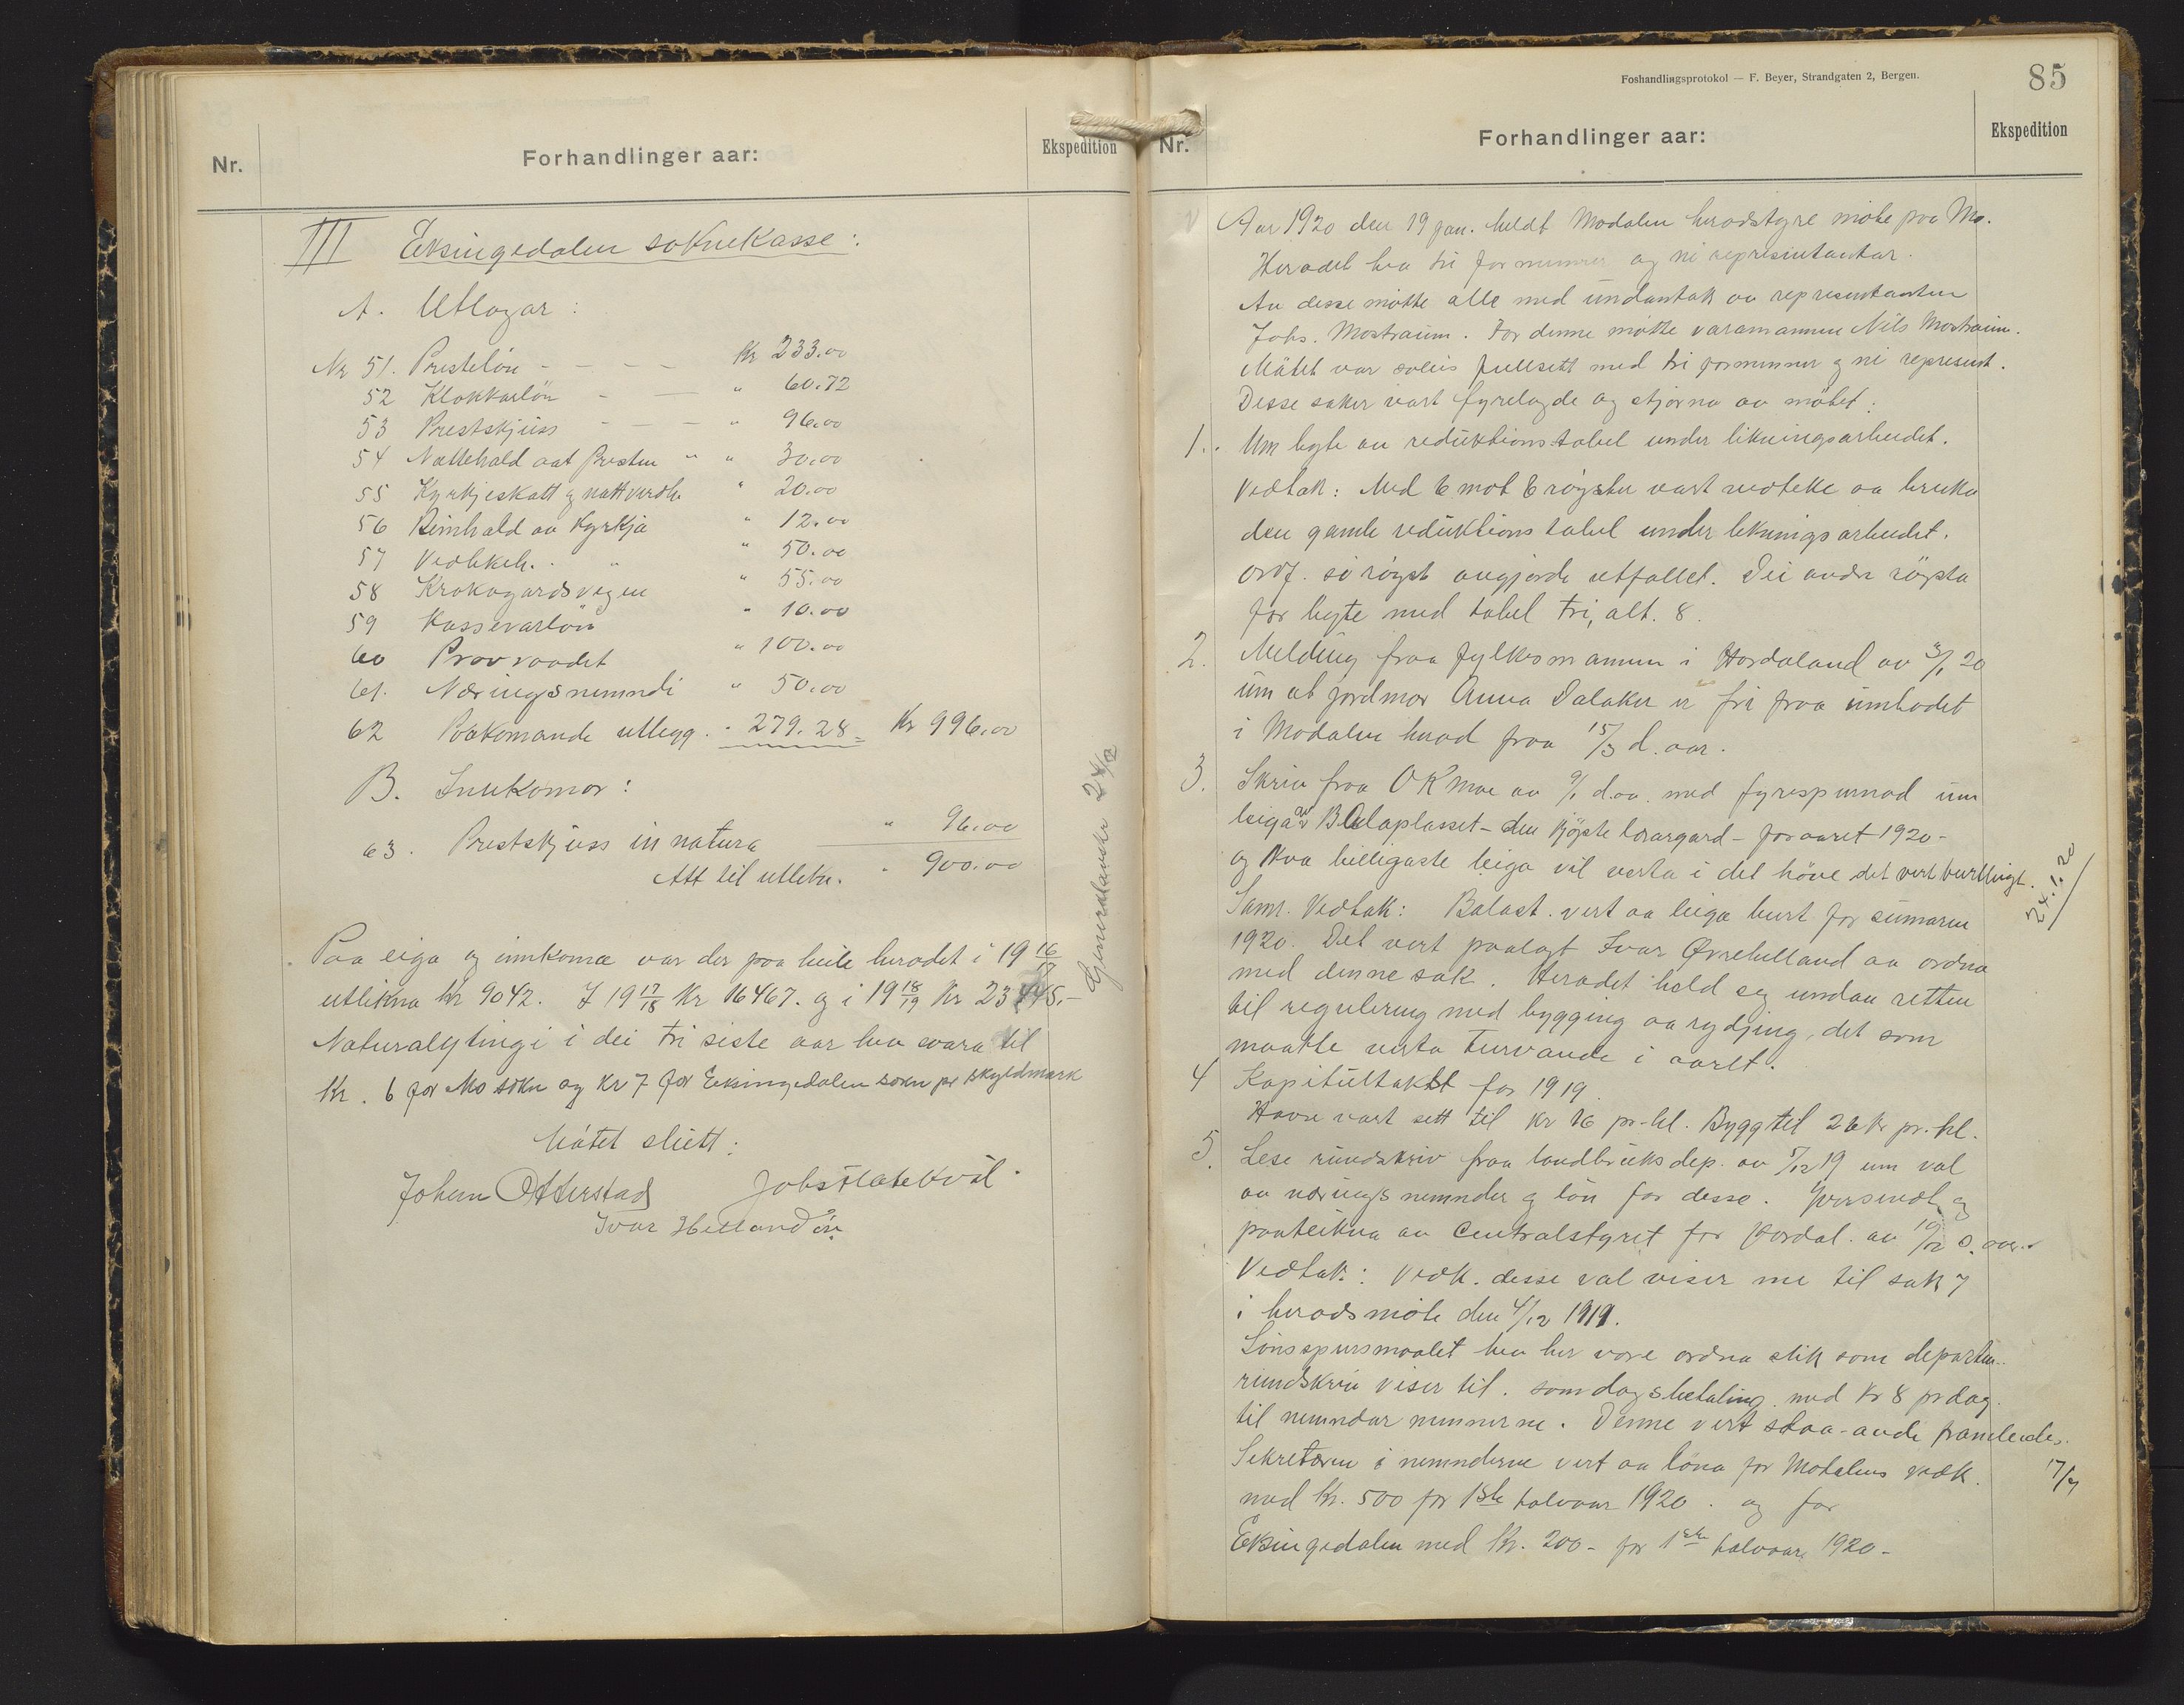 Nr.
Forhandlinger aar:
Ekspedition
III Eksingedalen soknekasse:
A. Utlogar:
Nr 51. Prestelön - - - - Kr 233.00
52 Klokkarlön - — " 60.72
53 Prestskjuss - - - " 96.00
54 Nattehald aat presten " " 30.00
55 Kyrkjeskatt og nattverdh. " 20.00
56 Reinhald av Kyrkja " 12.00
57 Vedlikeh. " " 50.00
58 Krokagardsvegen " 55.00
59 Kassevarlön " 10.00
60 Provraadet " 100.00
61. Næringsnemndi " 50.00
62 Paakomande utlegg. " 279.28 Kr 996.00
B. Innkomor:
63. Prestskjuss in natura " 96.00
Att til utlikn. " 900.00
Paa eiga og innkoma var der paa heile heradet i 19 16/17
utlikna Kr 9042. I 19 17/18 Kr 16467. og i 19 18/19 Kr 23745.-
Naturalytingi i dei tri siste aar hev svara til
Kr. 6 for Mo sokn og Kr 7 for Eksingedalen sokn pr skyldmark
Mötet slutt:
Johan Otterstad Johs Flatekvål.
Ivar Helland ör.
Foshandlingsprotokol — F. Beyer, Strandgaten 2, Bergen.
85
Nr.
Forhandlinger aar:
Ekspedition
Aar 1920 den 19 jan. heldt Modalen heradstyre möte paa Mo.
Heradet hev tri formenner og ni representantar.
Av desse mötte alle med undantak av representanten
Johs. Mostraum. For denne mötte varamannen Nils Mostraum.
Mötet var soleis fullsett med tri formenner og ni represent.
Desse saker vart fyrelagde og stjorna av mötet:
1. Um byte av reduktionstabel under likningsarbeidet.
Vedtak: Med 6 mot 6 röyster vart vedteke aa bruka
den gamle reduktionstabel under likningsarbeidet.
Ordf. si röyst avgjorde utfallet. Dei andre röysta
for byte med tabel tri, alt. 8.
2. Melding fraa fylkesmannen i Hordaland av 3/1 20
um at jordmor Anna Dalaker er fri fraa umbodet
i Modalen herad fraa 15/3 d. aar.
3. Skriv fraa O K Moe av 9/1 d.aa. med fyrespurnad um
leiga av Bolaplasset - den kjöpte lærargard - for aaret 1920 -
og kva billigaste leiga vil verta i det höve det vert burtleigt.
24.1.20
Samr. Vedtak: Bolast. vert aa leiga burt for sumaren
1920. Det vert paalagt Ivar Øvrehelland aa ordna
med denne sak. Heradet held seg undan retten
til regulering med bygging aa rydjing, det som
maatte verta turvande i aaret.
4 Kapitultakst for 1919.
Havre vart sett til Kr 16 pr. hl. Bygg til 26 Kr pr. hl.
5. Lese rundskriv fraa landbruksdep. av 5/12 19 um val
av næringsnemnder og lön for desse. Yversendt og
paateikna av Centralstyret for Hordal. av 19/12 s. aar.
Vedtak: Vedk. desse val viser me til sak 7
i heradsmöte den 4/12 1919.
Lönsspursmaalet hev her vore ordna slik som departem.
rundskriv viser til. som dagsbetaling med Kr 8 pr dag
til nemndarmennerne. Denne vert staa-ande framleides.
Sekretæren i nemnderne vert aa löna for Modalens vedk.
17/2
med Kr. 500 for 1ste halvaar 1920. og for
Eksingedalen med Kr. 200 - for 1ste halvaar 1920 -